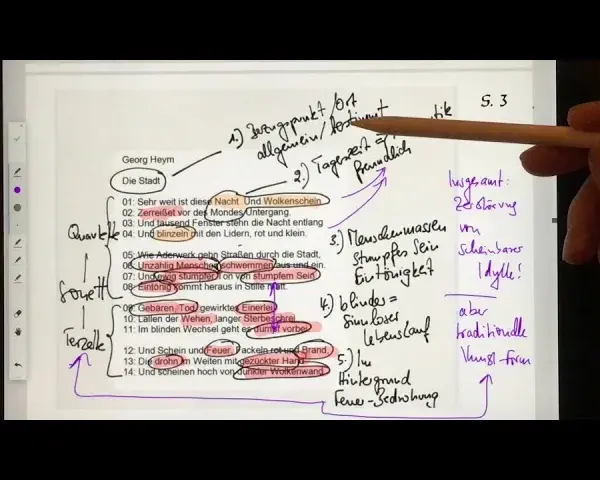 S. 3
1.) Bezugspunkt / Ort
allgemein / bestimmt
2.) Tageszeit =
freundlich
Georg Heym
Die Stadt
01: Sehr weit ist diese Nacht. Und Wolkenschein
02: Zerreißet vor des Mondes Untergang.
03: Und tausend Fenster stehn die Nacht entlang
04: Und blinzeln mit den Lidern, rot und klein.
05: Wie Aderwerk gehn Straßen durch die Stadt,
06: Unzählig Menschen schwemmen aus und ein.
07: Und ewig stumpfer Ton von stumpfem Sein
08: Eintönig kommt heraus in Stille matt.
09: Gebären, Tod, gewirktes Einerlei,
10: Lallen der Wehen, langer Sterbeschrei,
11: Im blinden Wechsel geht es dumpf vorbei.
12: Und Schein und Feuer, Fackeln rot und Brand,
13: Die drohn im Weiten mit gezückter Hand
14: Und scheinen hoch von dunkler Wolkenwand.
Quartette
Sonett
Terzette
3.) Menschenmassen
Stumpfes Sein
Eintönigkeit
4.) blinder =
Sinnloser
Lebenslauf
5.) Im
Hintergrund
Feuer-Bedrohung
Insgesamt:
Zerstörung
von
scheinbarer
Idylle!
aber
traditionelle
Kunst-Form